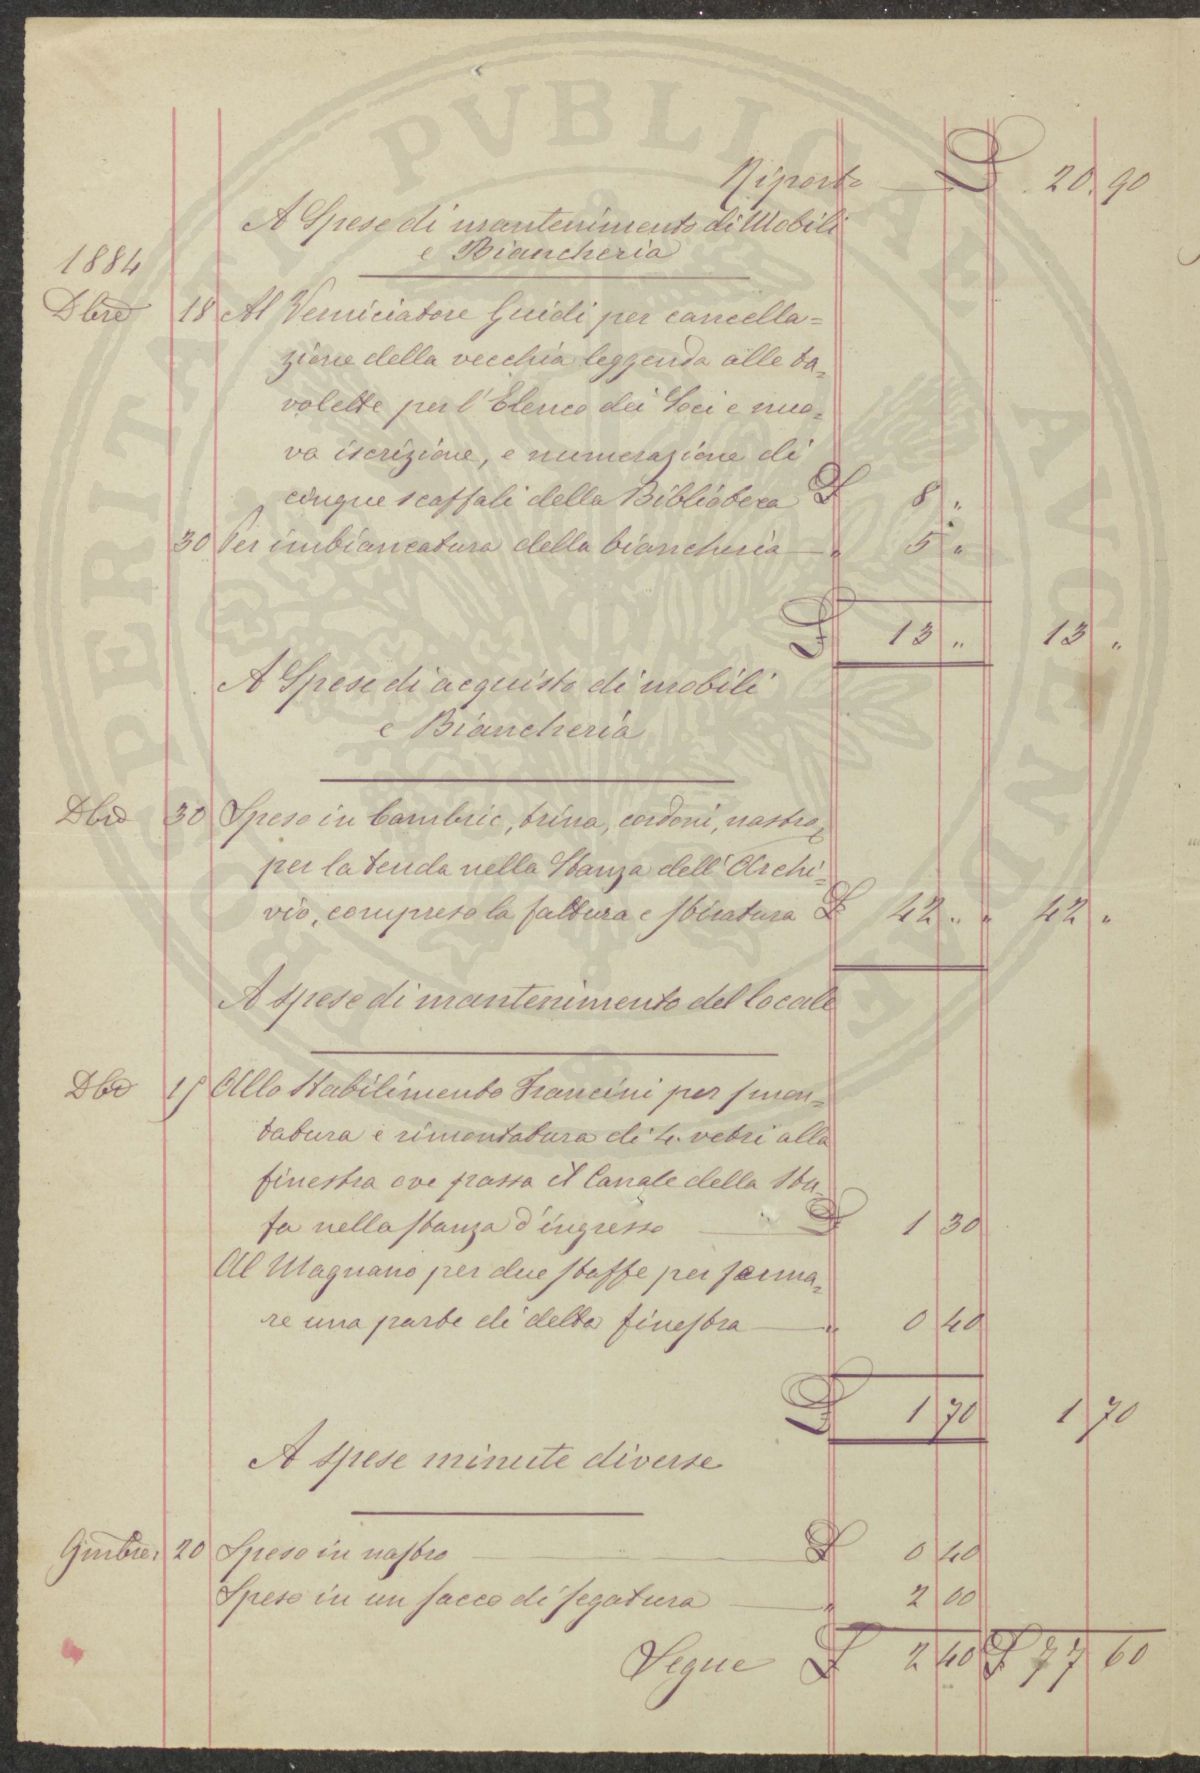 Riporto £ 20.90
A Spese di mantenimento di Mobili
e Biancheria
1884
Dbre 18 Al Verniciatore Guidi per cancella=
zione della vecchia leggenda alle ta=
volette per l'Elenco dei Soci e nuo=
va iscrizione, e numerazione di
cinque scaffali della Biblioteca £ 8 "
30 Per imbiancatura della biancheria " 5 "
£ 13 " 13 "
A Spese di acquisto di mobili
e Biancheria
Dbre 30 Speso in Cambric, trina, cordoni, nastro,
per la tenda nella Stanza dell'Archi=
vio, compreso la fattura e stiratura £ 42 " " 42 "
A spese di mantenimento del locale
Dbre 15 Allo Stabilimento Francini per smon=
tatura e rimontatura di 4. vetri alla
finestra ove passa il Canale della Stu=
fa nella stanza d'ingresso £ 1 30
Al Magnano per due staffe per ferma=
re una parte di detta finestra " 0 40
£ 1 70 1 70
A spese minute diverse
20 Speso in nastro £ 0 40
Speso in un sacco di segatura " 2 00
Segue £ 2 40 £ 77 60
PERITATI PVBLICAE AVGENDAE